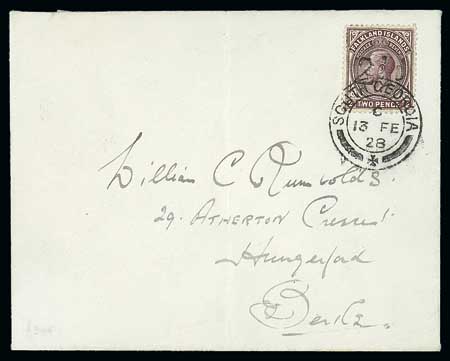 FALKLAND ISLANDS
TWO PENCE
SOUTH GEORGIA
C
13 FE
28
William C Rumbolds.
29. ATHERTON Cresses!
Hungerford
Berks.